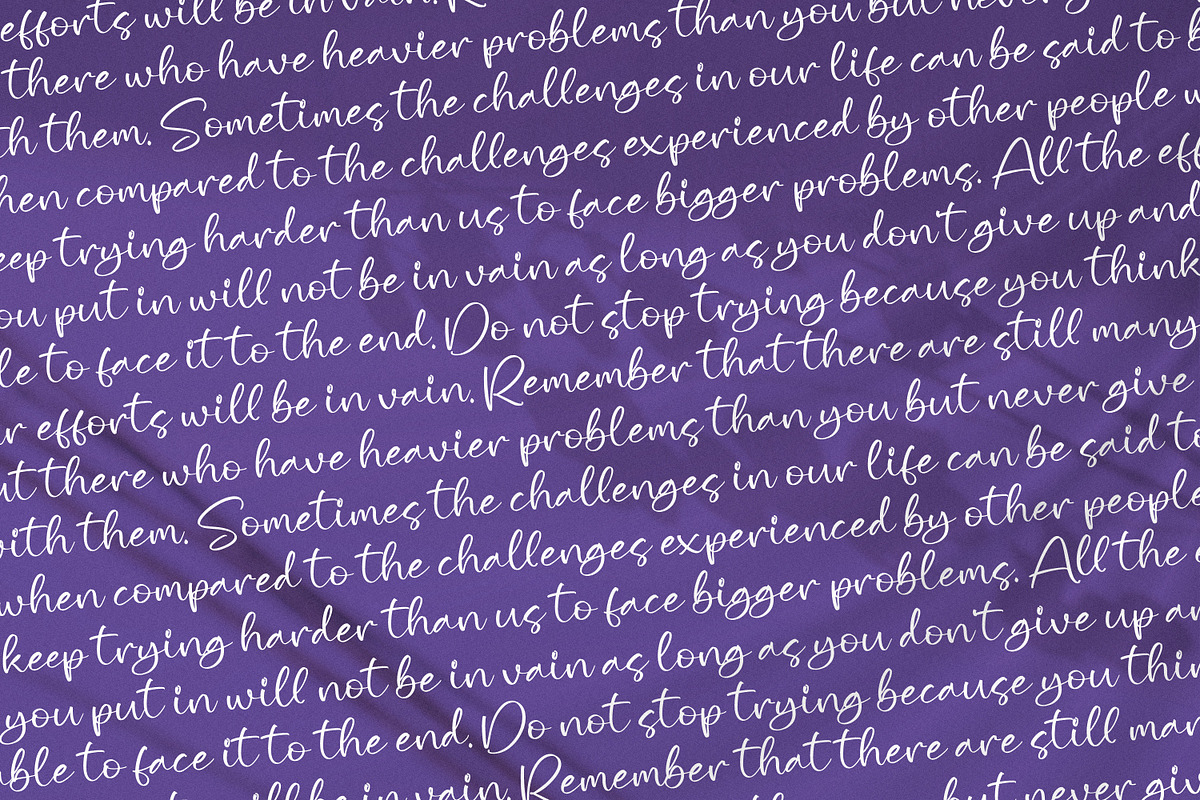 efforts will be in vain.
there who have heavier problems than you but never g
th them. Sometimes the challenges in our life can be said to b
hen compared to the challenges experienced by other people w
eep trying harder than us to face bigger problems. All the eff
ou put in will not be in vain as long as you don't give up and
le to face it to the end. Do not stop trying because you think
r efforts will be in vain. Remember that there are still many
ut there who have heavier problems than you but never give
with them. Sometimes the challenges in our life can be said to
when compared to the challenges experienced by other people
keep trying harder than us to face bigger problems. All the
you put in will not be in vain as long as you don't give up an
able to face it to the end. Do not stop trying because you thin
will be in vain. Remember that there are still man
but never giv